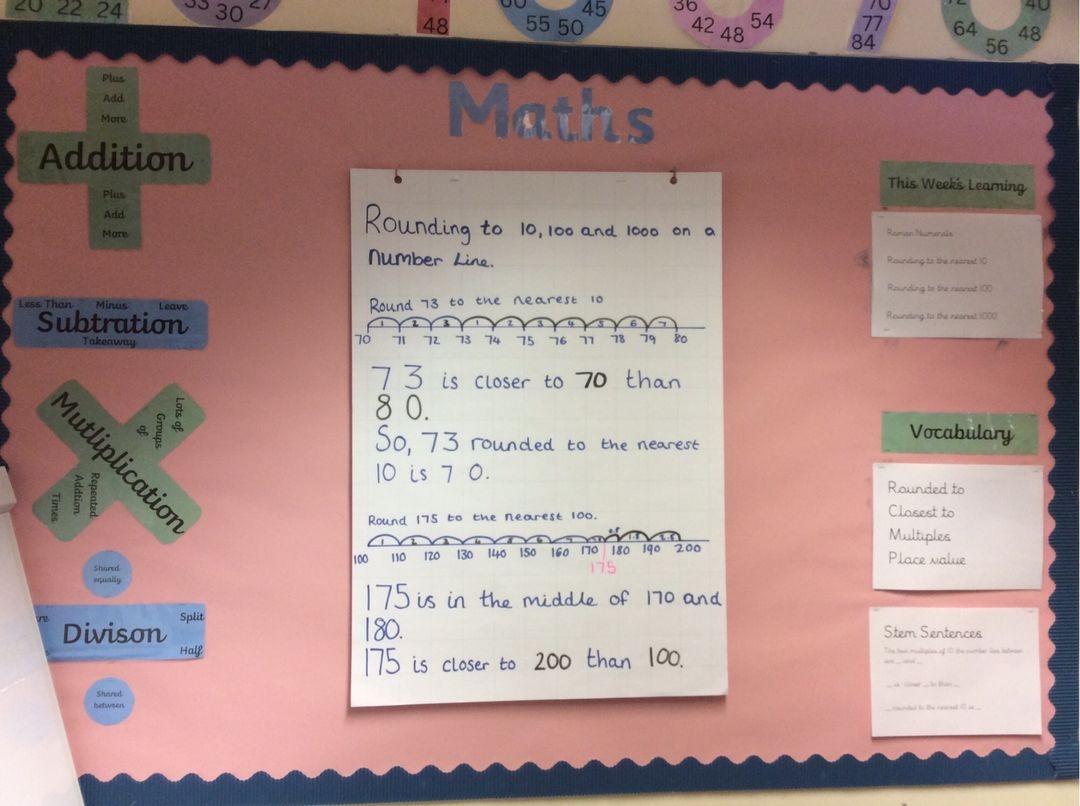 20 22 24
30 27
48
60 45
55 50
36
42 48 54
70
77
84
72 40
64 48
56
Maths
Plus
Add
More
Addition
Plus
Add
More
Less Than Minus Leave
Subtration
Takeaway
Mutliplication
Lots of
Groups
of
Repeated
Addtion
Times
Shared
equally
Divison
Split
Half
Shared
between
Rounding to 10, 100 and 1000 on a
Number Line.
Round 73 to the nearest 10
1 2 3 1 2 3 4 5 6 7
70 71 72 73 74 75 76 77 78 79 80
73 is closer to 70 than
80.
So, 73 rounded to the nearest
10 is 70.
Round 175 to the nearest 100.
100 110 120 130 140 150 160 170 180 190 200
175
175 is in the middle of 170 and
180.
175 is closer to 200 than 100.
This Week's Learning
Roman Numerals
Rounding to the nearest 10
Rounding to the nearest 100
Rounding to the nearest 1000
Vocabulary
Rounded to
Closest to
Multiples
Place value
Stem Sentences
The two multiples of 10 the number lies between
are _ and _
_ is closer _ to than _
_ rounded to the nearest 10 is _